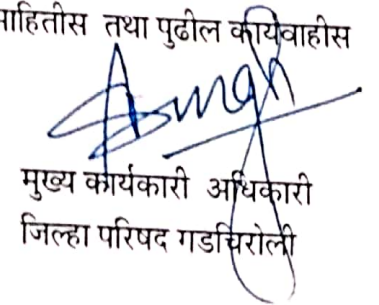 माहितीस तथा पुढील कार्यवाहीस
मुख्य कार्यकारी अधिकारी
जिल्हा परिषद गडचिरोली